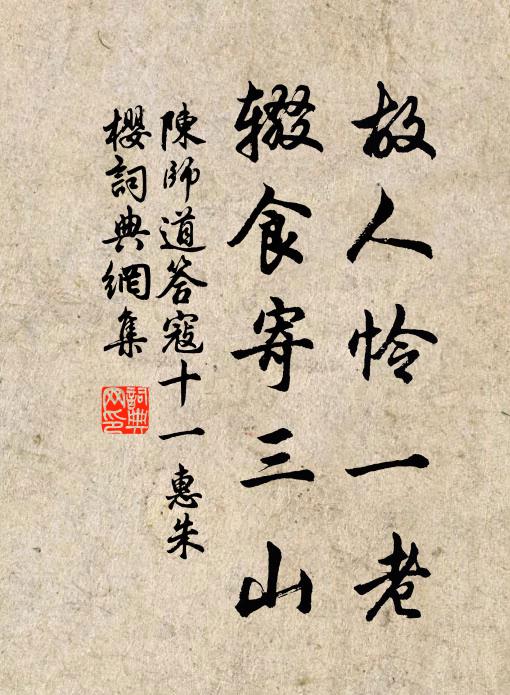 故人怜一老
辍食寄三山
陳師道答寇十一惠朱
櫻詞典網集
詞典
网印